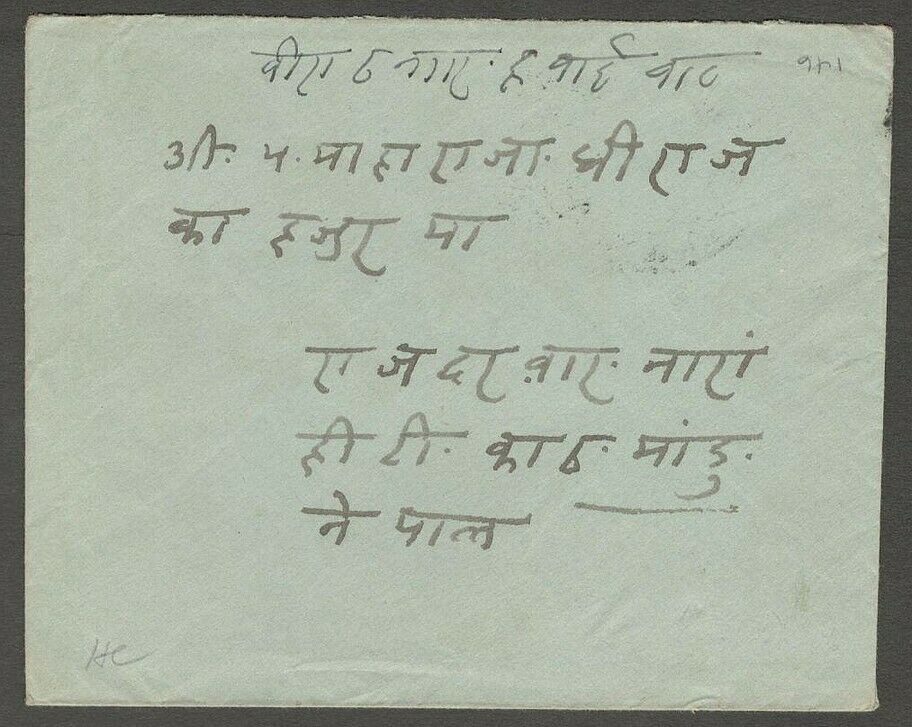 वीराट नगर. हवाई वाट
श्री. ५. माहाराजा. धीराज
का हजुर मा
राज दरबार. नारां
ही टी. काठ. मांडु.
नेपाल